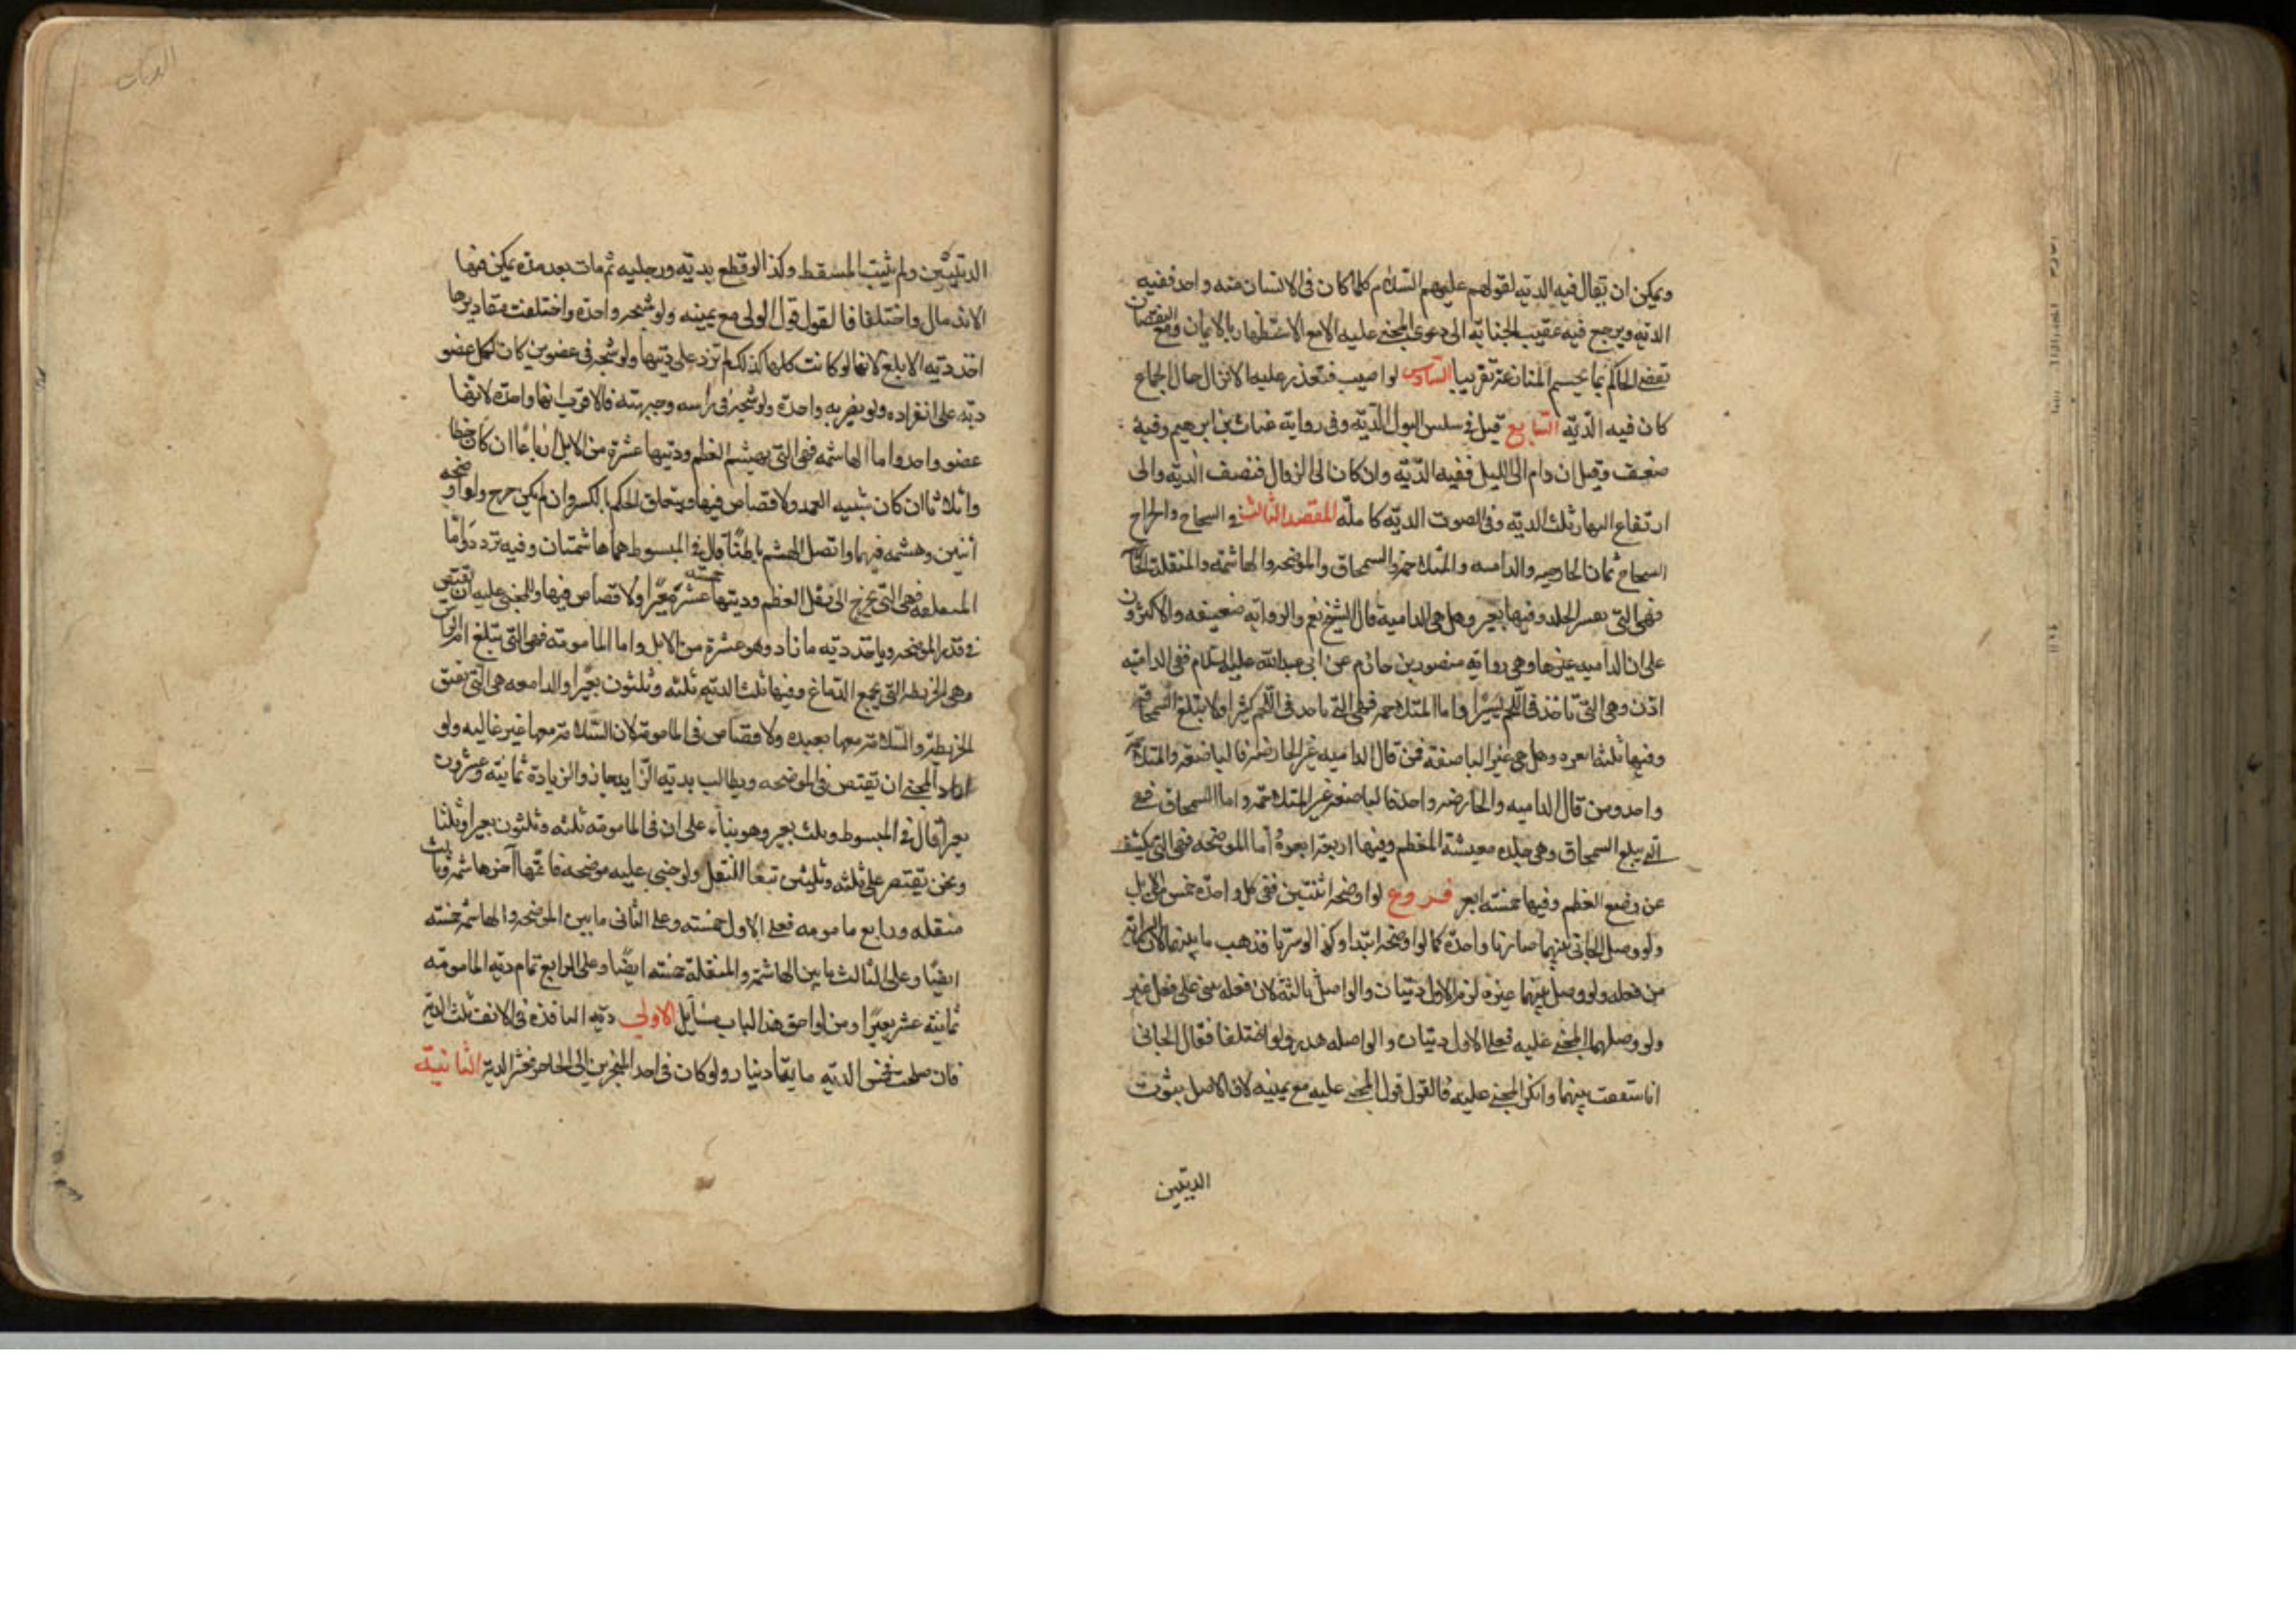 ويمكن ان يقال فيه الدية لقولهم عليهم السلام كلما كان في الانسان منه واحد ففيه
الدية ويرجع فيه عقيب الجناية الى دعوى المجني عليه الا مع الاستظهار بالايمان ومع النقصان
يقضي الحاكم بما يحسم المنازعة تقريبا السادس لو اصيب فتعذر عليه الانزال حال الجماع
كان فيه الدية السابع قيل في سلس البول الدية وفي رواية غياث بن ابرهيم وفيه
ضعف وقيل ان دام الى الليل ففيه الدية وان كان الى الزوال فنصف الدية والى
ارتفاع النهار ثلث الدية وفي الصوت الدية كاملة المقصد الثالث في الشجاج والجراح
الشجاج ثمان الحارصه والداميه والمتلاحمة والسمحاق والموضحه والهاشمه والمنقله
فهي التي تقشر الجلد وفيها بعير وهل هي الدامية قال الشيخ نعم والرواية ضعيفه والاكثرون
على ان الداميه غيرها وهي رواية منصور بن حازم عن ابي عبدالله عليه السلام ففي الدامية
اذن وهي التي تاخذ في اللحم يسيرا واما المتلاحمه فهي التي تاخذ في اللحم كثيرا ولا تبلغ السمحاق
وفيها ثلثة ابعره وهل هي غير الباضعة فمن قال الداميه غير الحارصه فالباضعة والمتلاحمة
واحد ومن قال الداميه والحارصه واحد فالباضعه غير المتلاحمه واما السمحاق فهي
التي تبلغ السمحاق وهي جلده مغيشة العظم وفيها اربعة ابعرة اما الموضحه فهي التي تكشف
عن وضع العظم وفيها خمسة ابعر فروع لو اوضحه اثنتين ففي كل واحدة خمس من الابل
ولو وصل الجاني بينهما صارتا واحدة كما لو اوضحه ابتداء وكذا لو سرتا فذهب ما بينهما لان السراية
من فعله ولو وصل بينهما غيره لزم الاول ديتان والواصل ثالثة لان فعله لا يبنى على فعل غيره
ولو وصلهما المجني عليه فعلى الاول ديتان والواصله هدر ولو اختلفا فقال الجاني
انا شققت بينهما وانكر المجني عليه فالقول قول المجني عليه مع يمينه لان الاصل ثبوت
الديتين
الديات
الديتين ولم يثبت المسقط وكذا لو قطع يديه ورجليه ثم مات بعد مدة يمكن فيها
الاندمال واختلفا فالقول قول الولي مع يمينه ولو شجه واحدة واختلفت مقاديرها
اخذ دية الابلغ لانها لو كانت كلها كذلك لم تزد على ديتها ولو شجه في عضوين كان لكل عضو
دية على انفراده ولو بضربه واحدة ولو شجه في راسه وجبهته فالاقرب انها واحدة لانهما
عضو واحد واما الهاشمه فهي التي تهشم العظم وديتها عشرة من الابل ارباعا ان كان خطا
واثلاثا ان كان شبيه العمد ولا قصاص فيها ويتعلق الحكم بالكسر وان لم يكن جرح ولو اوضحه
اثنين وهشمه فيهما واتصل الهشم باطنا قال في المبسوط هما هاشمتان وفيه تردد واما
المنقله فهي التي تحوج الى نقل العظم وديتها خمسة عشرة بعيرا ولا قصاص فيها وللمجني عليه ان يقتص
في قدر الموضحه وياخذ دية ما زاد وهو عشرة من الابل واما المامومة فهي التي تبلغ ام الراس
وهي الخريطه التي تجمع الدماغ وفيها ثلث الدية ثلثه وثلثون بعيرا والدامغه هي التي تفتق
الخريطة والسلامة معها بعيده ولا قصاص في المامومة لان السلامة معها غير غالبه ولو
اراد المجني ان يقتص في الموضحه ويطالب بدية الزايد جاز والزيادة ثمانية وعشرون
بعيرا قال في المبسوط وثلث بعير وهو بناء على ان في المامومة ثلثه وثلثون بعيرا وثلثا
ونحن نقتصر على ثلثه وثلثين تبعا للنقل ولو جنى عليه موضحه فاتمها آخر هاشمه وثالث
منقله ورابع مامومه فعلى الاول خمسته وعلى الثاني ما بين الموضحه والهاشمه خمسته
ايضا وعلى الثالث ما بين الهاشمة والمنقلة خمسته ايضا وعلى الرابع تمام دية المامومة
ثمانية عشر بعيرا ومن لواحق هذا الباب مسايل الاولى دية النافذة في الانف ثلث الدية
فان صلحت فخمس الدية مايتا دينار ولو كانت في احد المنخرين الى الحاجز فعشر الدية الثانية